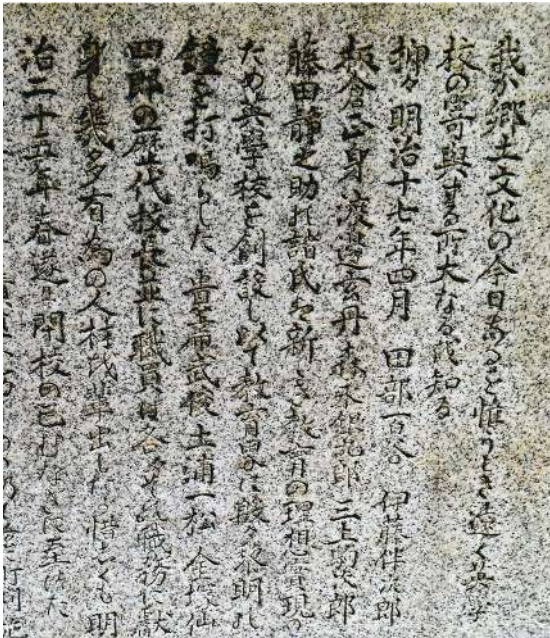 我が郷土文化の今日あるを惟うとき遠く英学
校の寄與する所大なるを知る
抑々明治十七年四月 田部百谷 伊藤律次郎
板倉正身 渡邊玄丹 森永 三上駒次郎
藤田静之助の諸氏は新しき教育の理想實現の
ため英學校を創設し以て教育 黎明の
鐘を打鳴らした 土浦一松 金坂仙
四郎の歴代校長並に職員は各々その職務に献
身し幾多有為の人材を輩出したが惜しくも明
治二十五年春遂に閉校の已むなきに至った